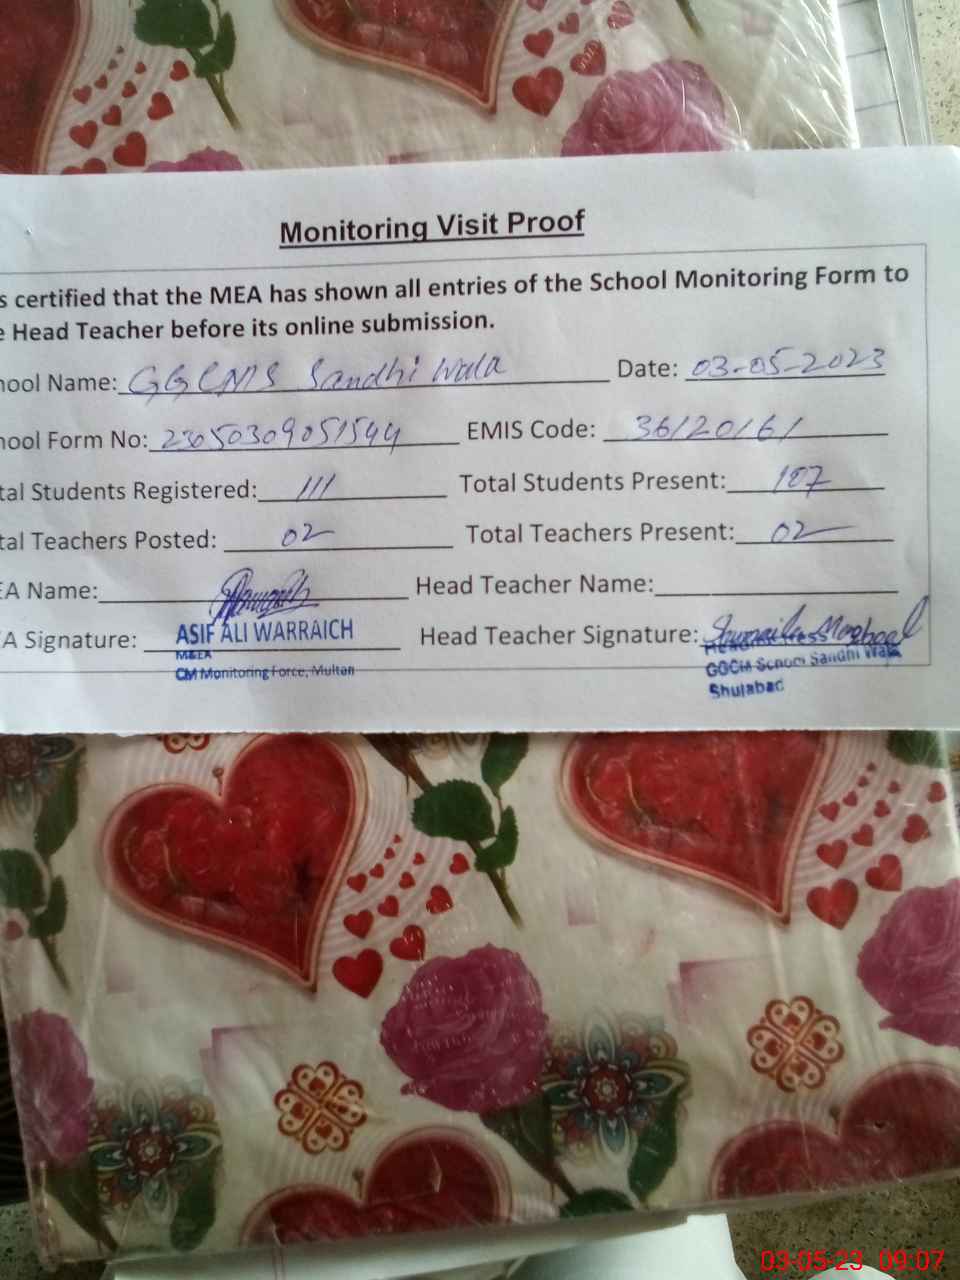 Monitoring Visit Proof
s certified that the MEA has shown all entries of the School Monitoring Form to
e Head Teacher before its online submission.
hool Name: GGCMS Sandhi Wala Date: 03-05-2023
hool Form No: 23050309051544 EMIS Code: 36120161
tal Students Registered: 111 Total Students Present: 107
tal Teachers Posted: 02 Total Teachers Present: 02
EA Name: Head Teacher Name:
A Signature: ASIF ALI WARRAICH Head Teacher Signature:
M&EA
CM Monitoring Force, Multan
GGCM School Sandhi Wala
Shujabad
03-05-23 09:07